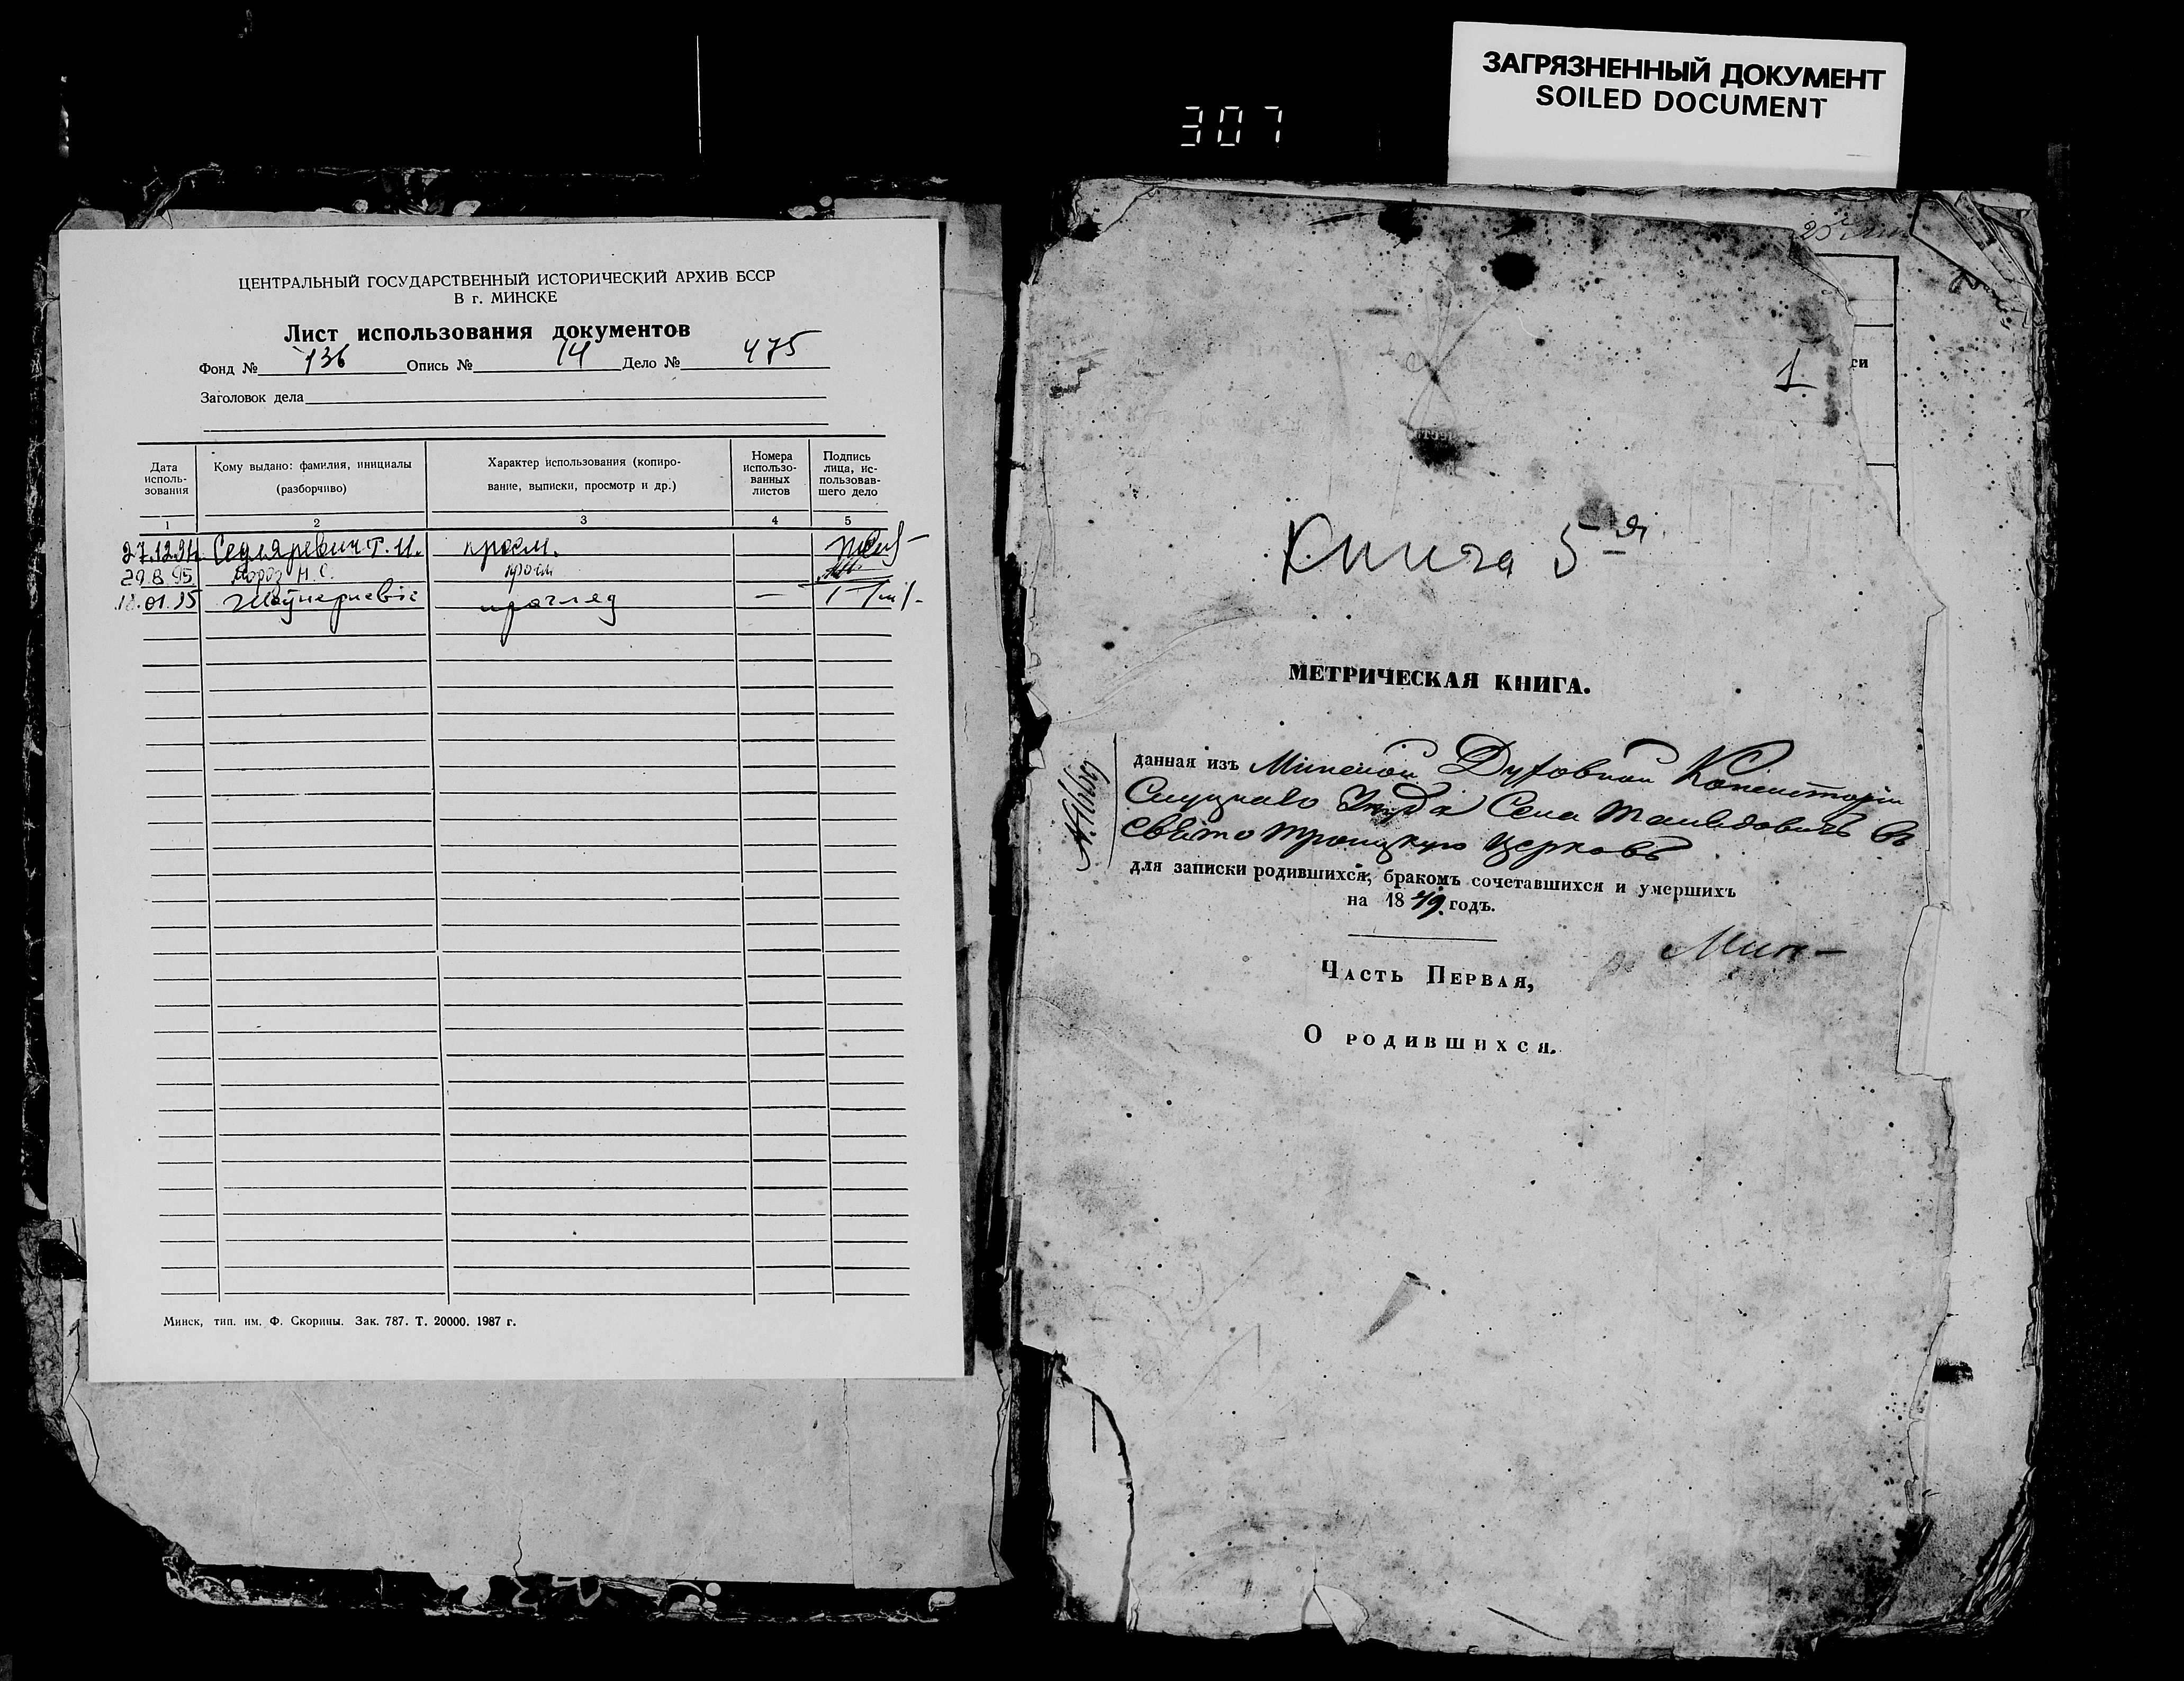 ЗАГРЯЗНЕННЫЙ ДОКУМЕНТ
SOILED DOCUMENT
307
ЦЕНТРАЛЬНЫЙ ГОСУДАРСТВЕННЫЙ ИСТОРИЧЕСКИЙ АРХИВ БССР
В г. МИНСКЕ
Лист использования документов
Фонд № 136 Опись № 14 Дело № 475
Заголовок дела
Дата исполь-зования
Кому выдано: фамилия, инициалы (разборчиво)
Характер использования (копиро-вание, выписки, просмотр и др.)
Номера использо-ванных листов
Подпись лица, ис-пользовав-шего дело
1 2 3 4 5
27.12.94. Седляревич Т. И. просм.
29.8.95. Мороз Н. С. просм
18.01.95 прагляд —
Минск, тип. им. Ф. Скорины. Зак. 787. Т. 20000. 1987 г.
1
си
Книга 5-я
МЕТРИЧЕСКАЯ КНИГА.
данная изъ Минской Духовной Консисторіи
Слуцкаго Уезда Села в
Свято Троицкую Церковь
для записки родившихся, бракомъ сочетавшихся и умершихъ
на 1849 годъ.
Мин-
Часть Первая,
О родившихся.